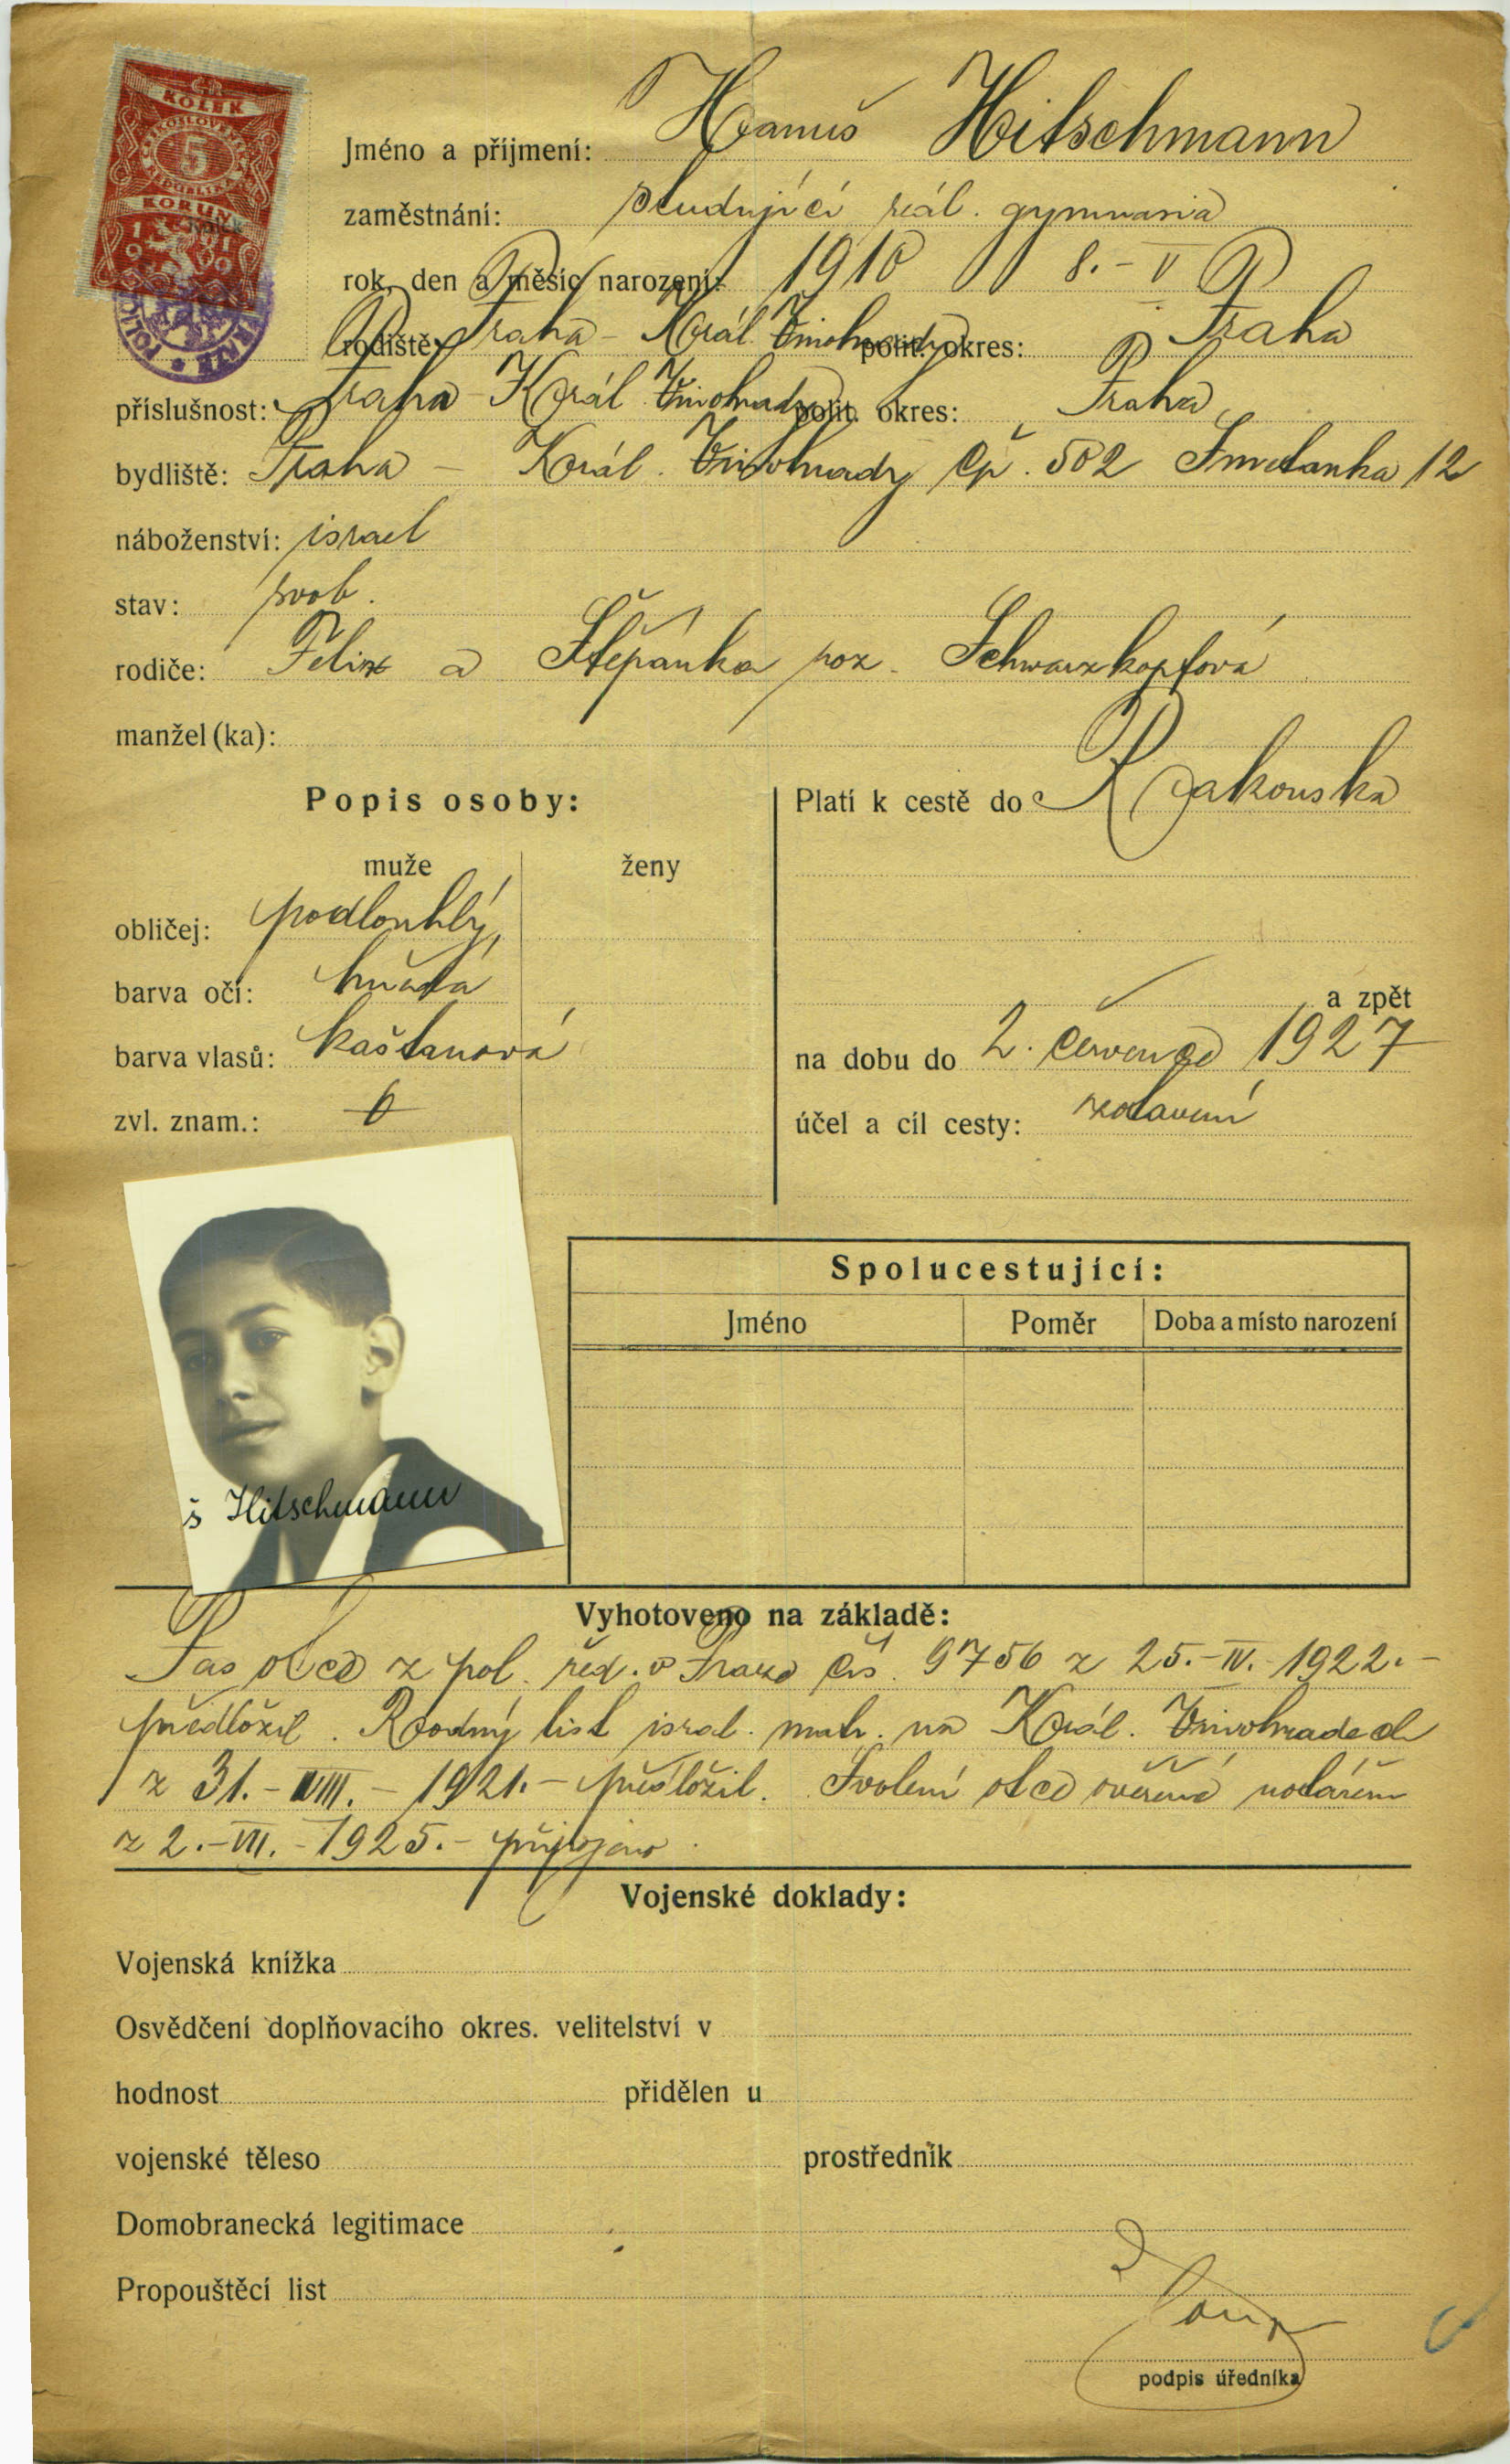 KOLEK
ČESKOSLOVENSKÁ
5
REPUBLIKA
KORUN
1919
Jméno a příjmení: Hanuš Hitschmann
zaměstnání: studující reál. gymnasia
rok, den a měsíc narození: 1910 8.-V
rodiště: Praha - Král. Vinohrady polit. okres: Praha
příslušnost: Praha - Král. Vinohrady polit. okres: Praha
bydliště: Praha - Král. Vinohrady čp. 502 Smetanka 12
náboženství: israel
stav: svob.
rodiče: Felix a Štěpánka roz. Schwarzkopfová
manžel(ka):
Popis osoby:
muže ženy
obličej: podlouhlý
barva očí: hnědá
barva vlasů: kaštanová
zvl. znam.: 0
Platí k cestě do Rakouska
a zpět
na dobu do 2. července 1927
účel a cíl cesty: zotavení
Spolucestující:
Jméno Poměr Doba a místo narození
š Hitschmann
Vyhotoveno na základě:
Pas otce z pol. řed. v Praze čís. 9756 z 25.-IV.-1922.-
předložil. Rodný list isral. matr. na Král. Vinohradech
z 31.-VIII.-1921.- předložil. Svolení otce ověřené notářem
z 2.-VII.-1925.- připojeno.
Vojenské doklady:
Vojenská knížka
Osvědčení doplňovacího okres. velitelství v
hodnost přidělen u
vojenské těleso prostředník
Domobranecká legitimace
Propouštěcí list
podpis úředníka